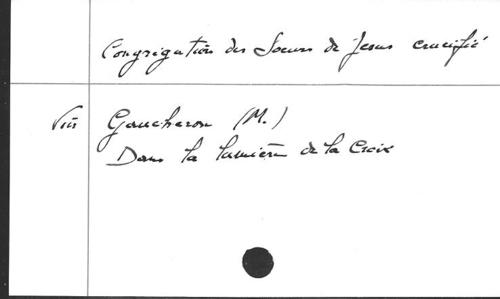 Congrégation des Soeurs de Jesus crucifié
Voir Gaucheron (M.)
Dans la lumière de la Croix